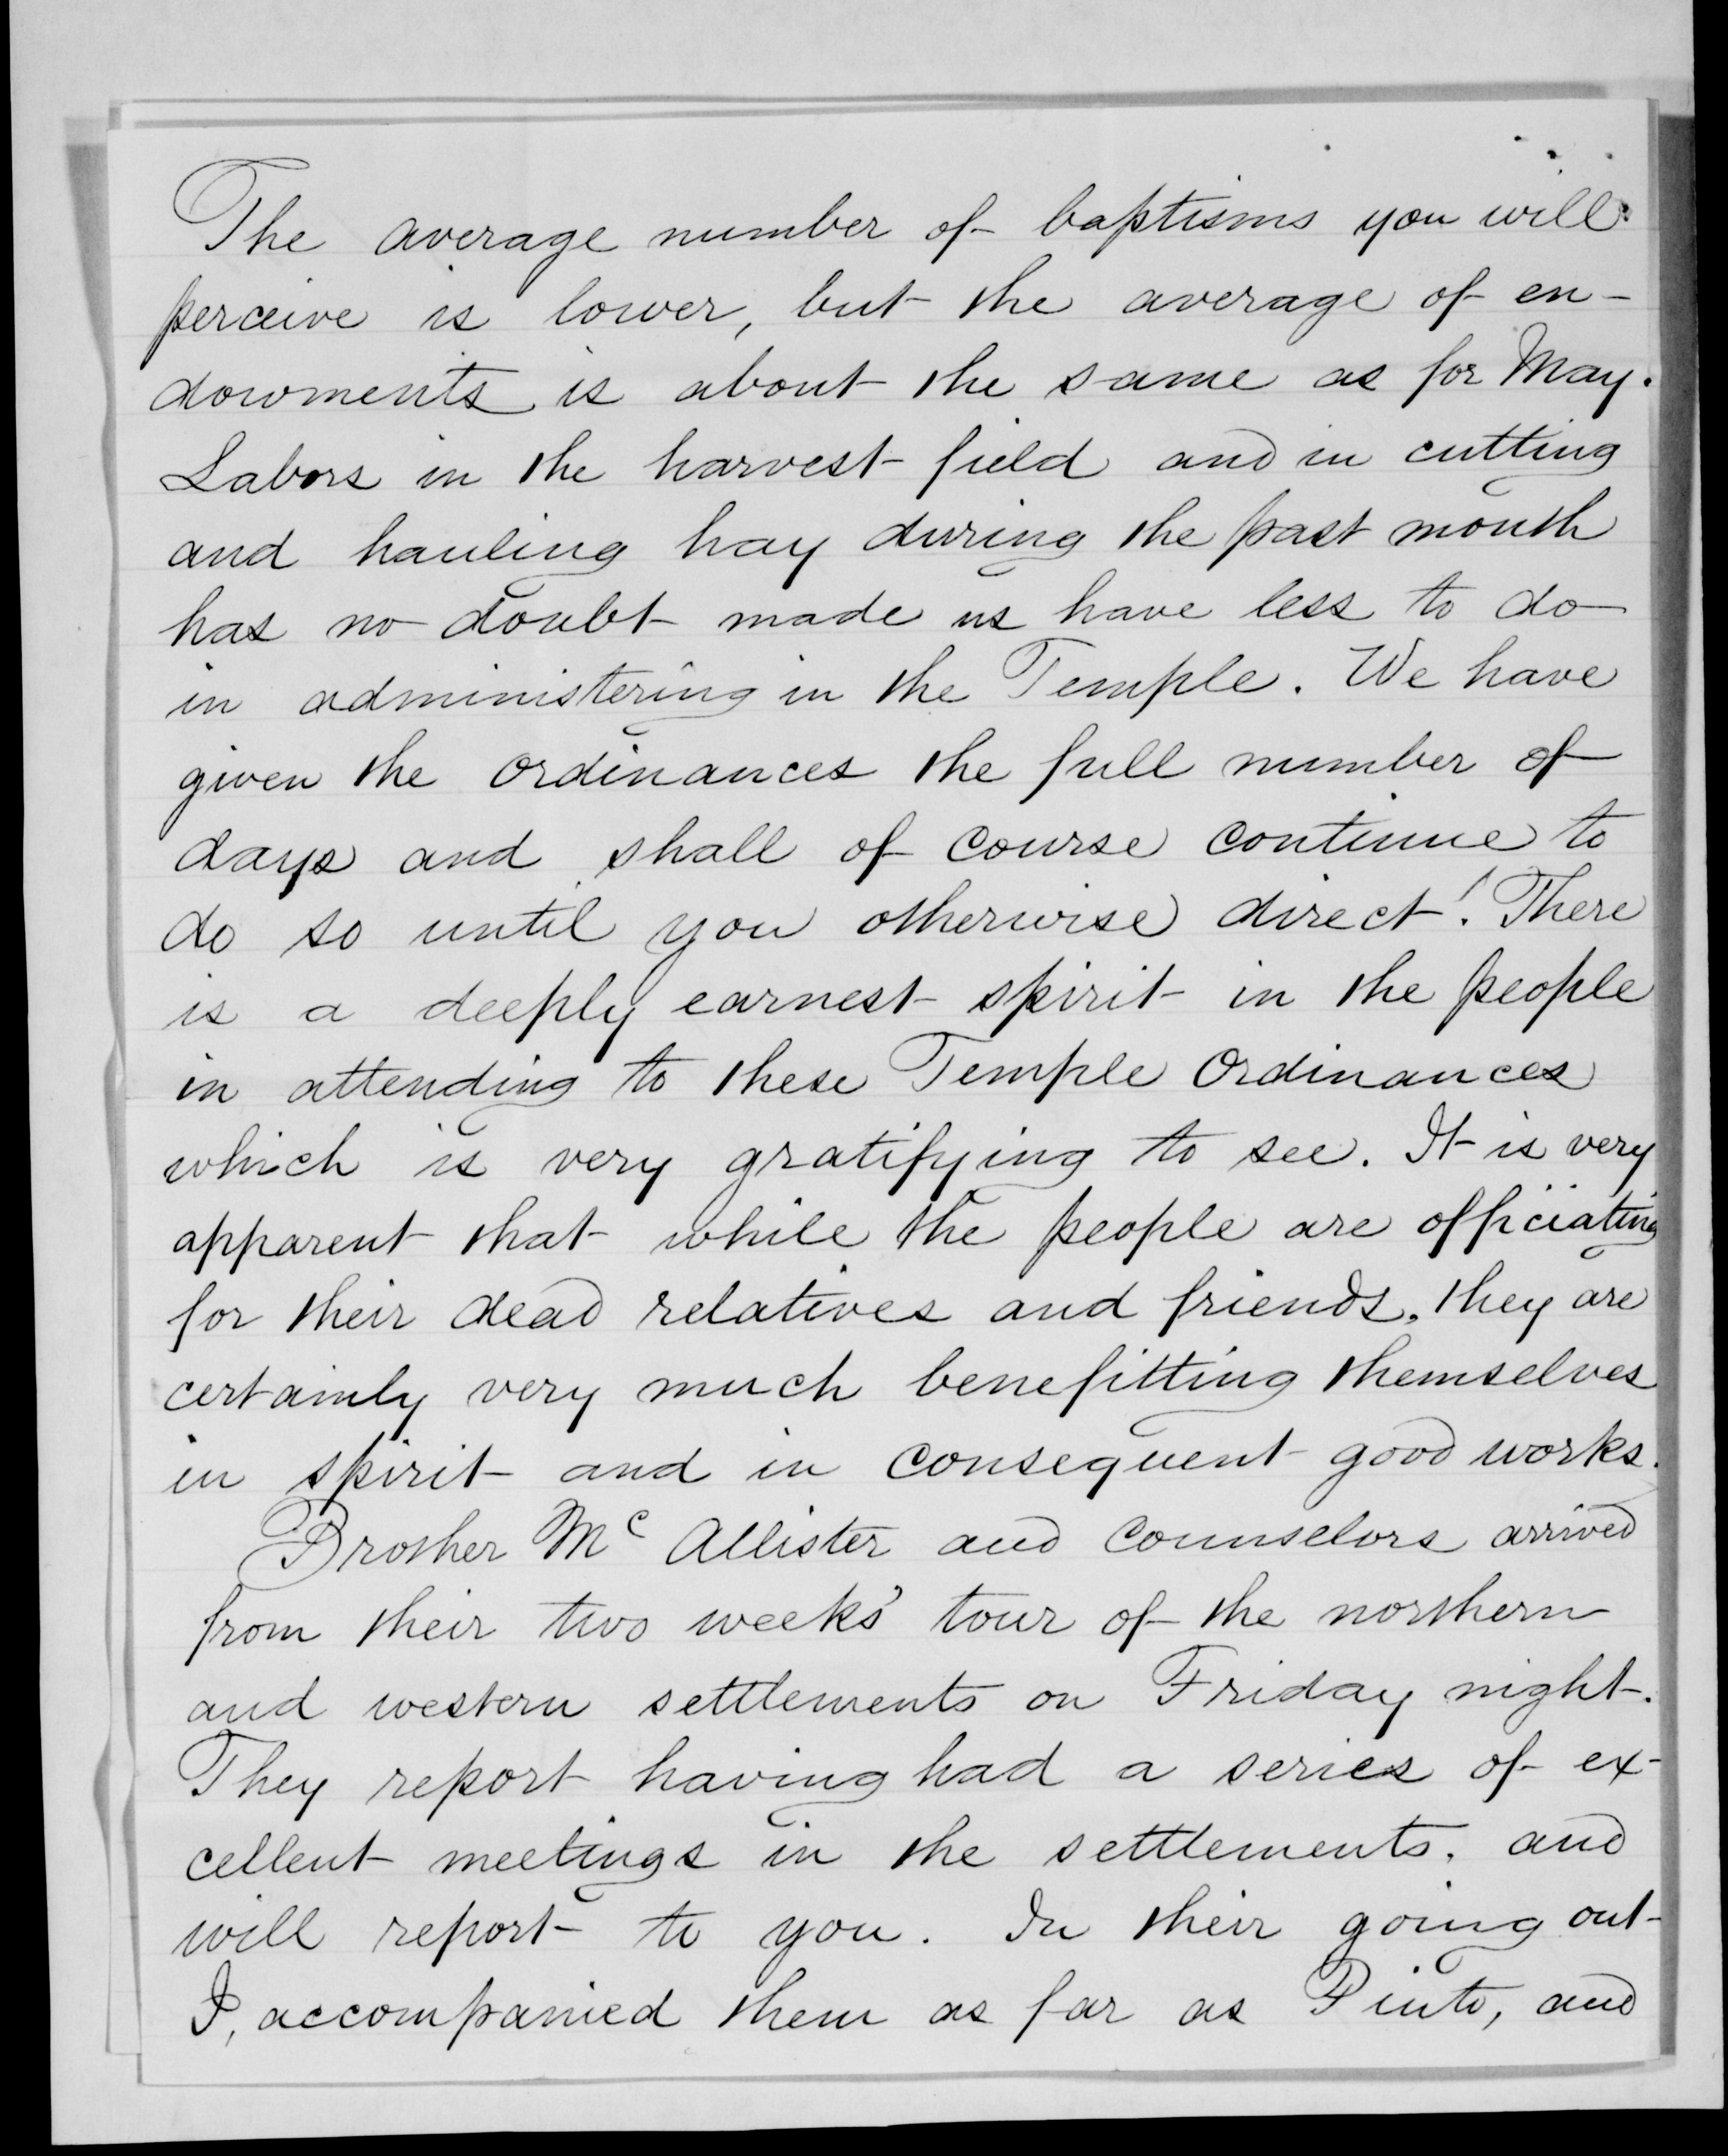 The average number of baptisms you will
perceive is lower, but the average of en-
dowments is about the same as for May.
Labors in the harvest field and in cutting
and hauling hay during the past month
has no doubt made us have less to do
in administering in the Temple. We have
given the Ordinances the full number of
days and shall of course continue to
do so until you otherwise direct! There
is a deeply earnest spirit in the people
in attending to these Temple Ordinances
which is very gratifying to see. It is very
apparent that while the people are officiating
for their dead relatives and friends, they are
certainly very much benefitting themselves
in spirit and in consequent good works.
Brother Mc Allister and Counselors arrived
from their two weeks' tour of the northern
and western settlements on Friday night.
They report having had a series of ex-
cellent meetings in the settlements, and
will report to you. In their going out
I, accompanied them as far as Pinto, and